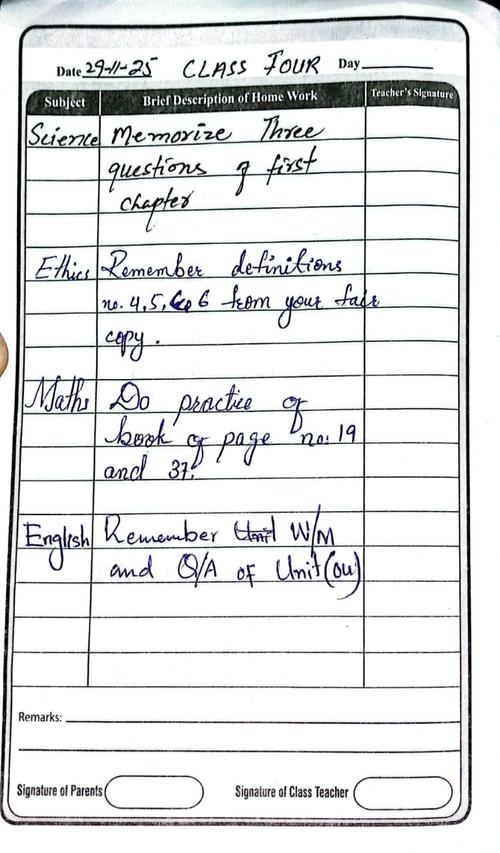 Date 29-11-25 CLASS FOUR Day
Subject Brief Description of Home Work Teacher's Signature
Science Memorize Three
questions of first
chapter
Ethics Remember definitions
no. 4,5, 6 from your fair
copy.
Maths Do practice of
book of page no: 19
and 37.
English Remember W/M
and Q/A OF Unit(
Remarks:
Signature of Parents Signature of Class Teacher